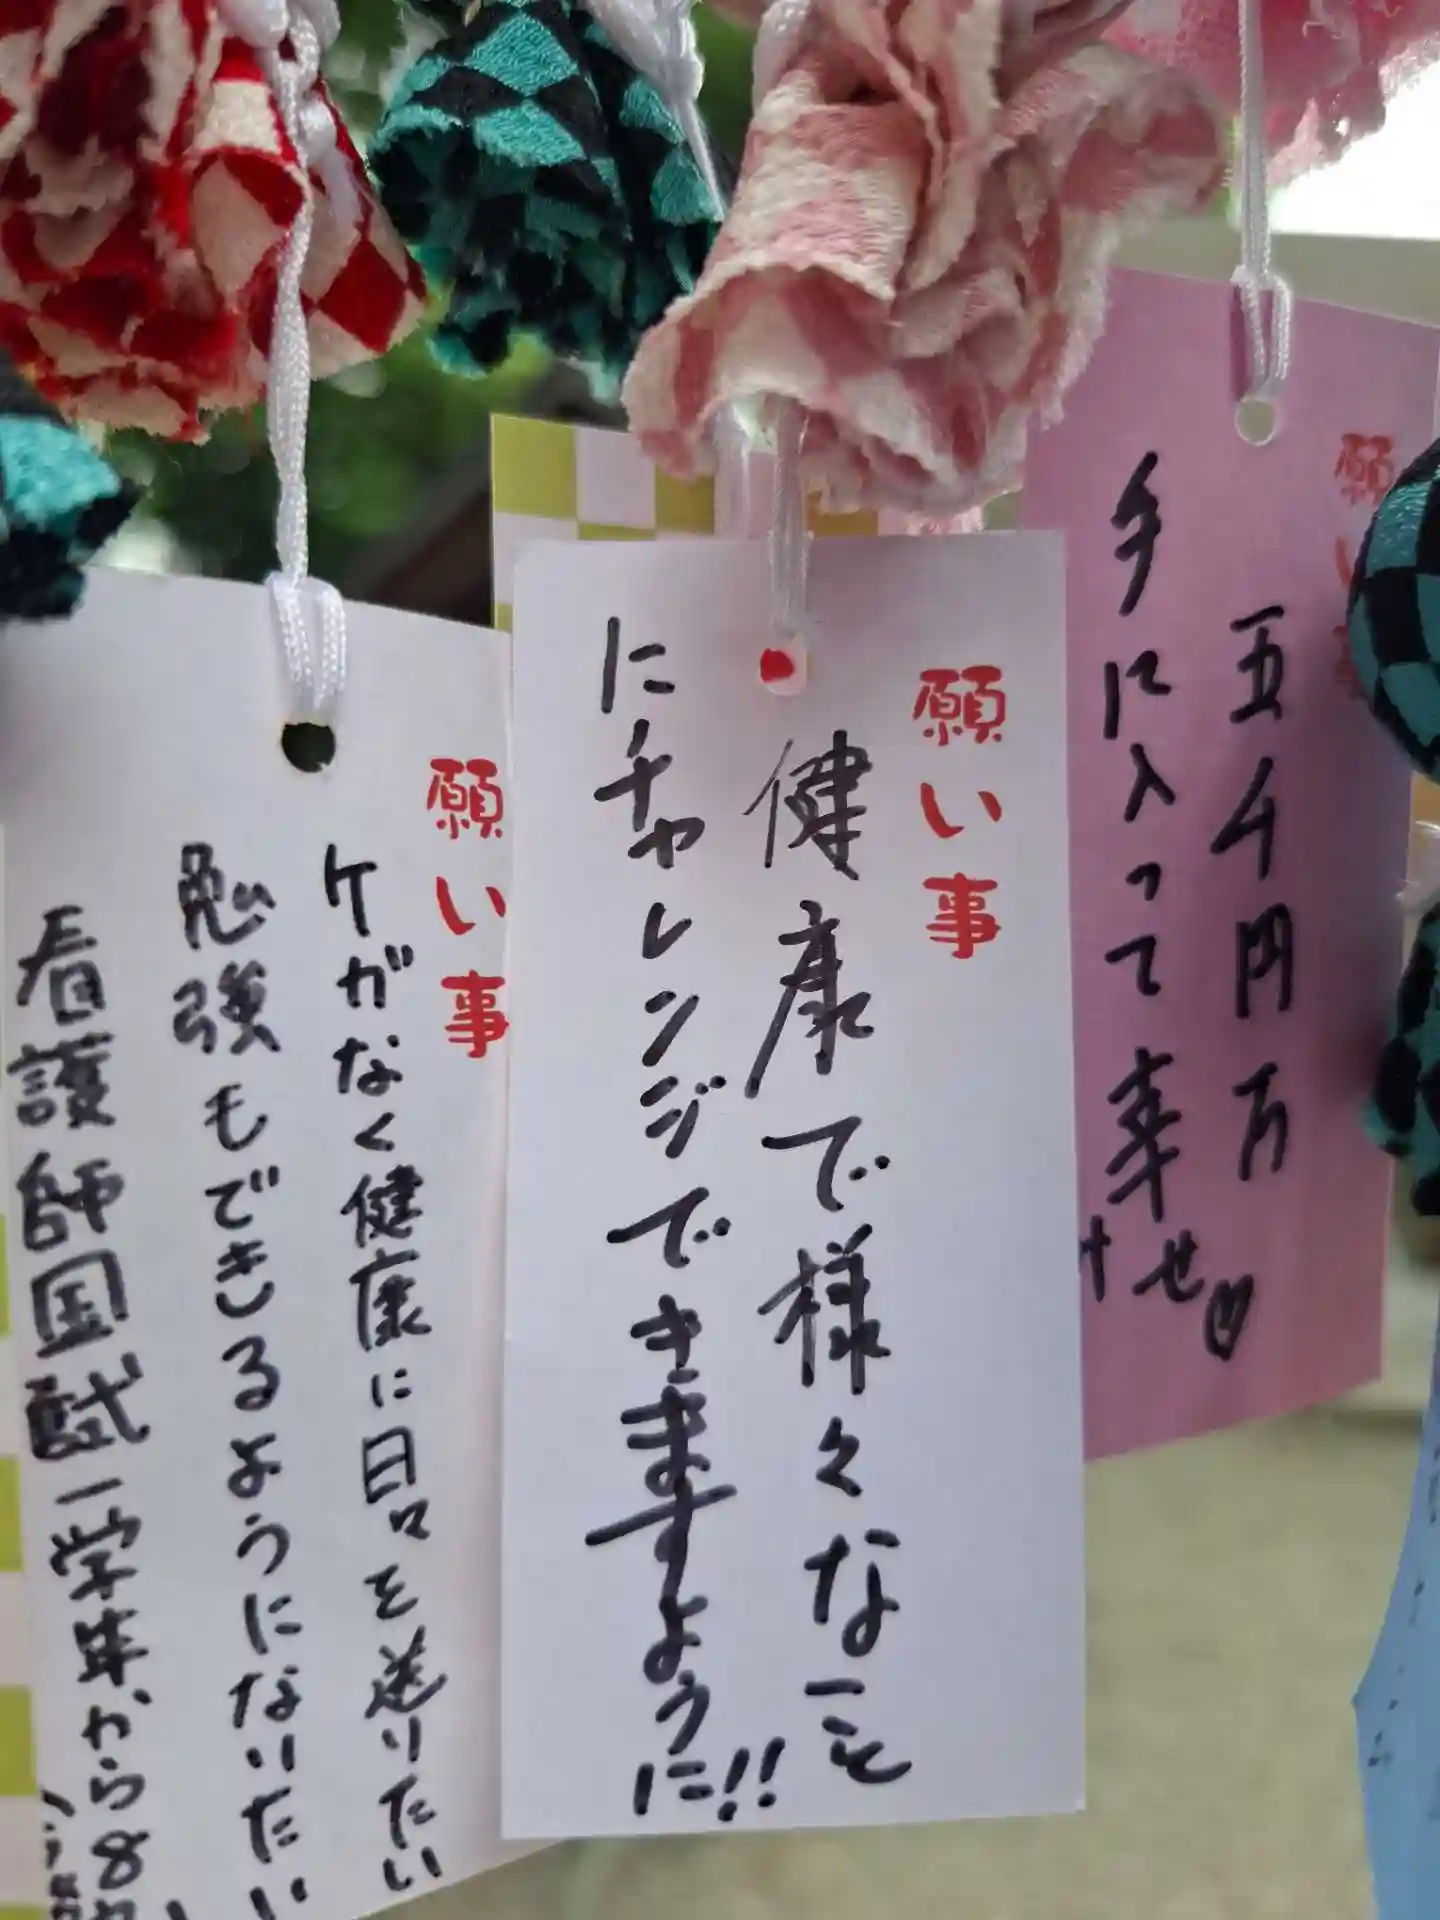 願い事
ケガなく健康に日々を送りたい
勉強もできるようになりたい
看護師国試一学年から8
願い事
健康で様々なこと
にチャレンジできますように!!
願い事
五千円万
手に入って幸
せ♡